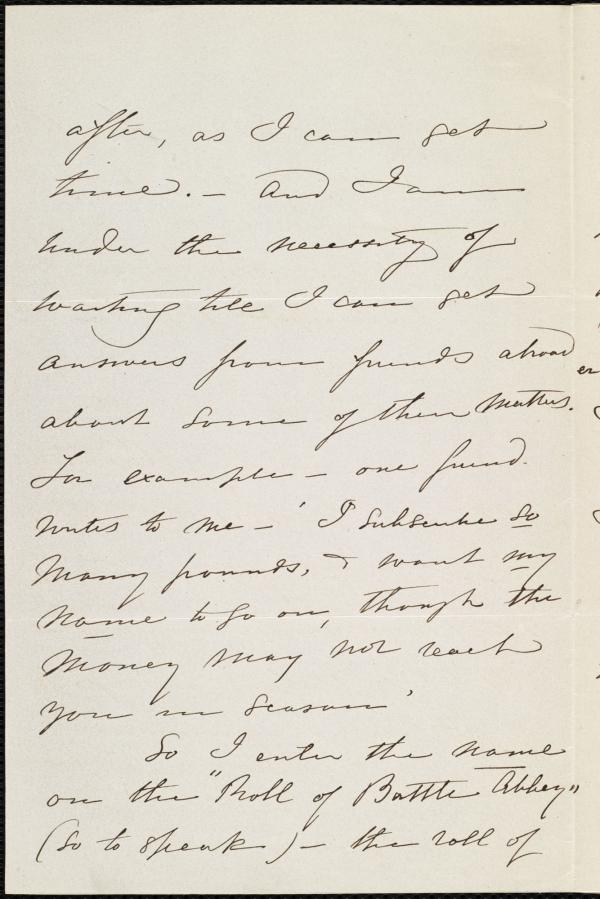 after, as I can get
time. – And I am
under the necessity of
waiting till I can get
answers from friends abroad
about some of these matters.
For example – one friend
writes to me – 'I subscribe so
many pounds, & want my
name to go on, though the
money may not reach
you in season'
So I enter the name
on the "Roll of Battle Abbey"
(so to speak) – the roll of
er